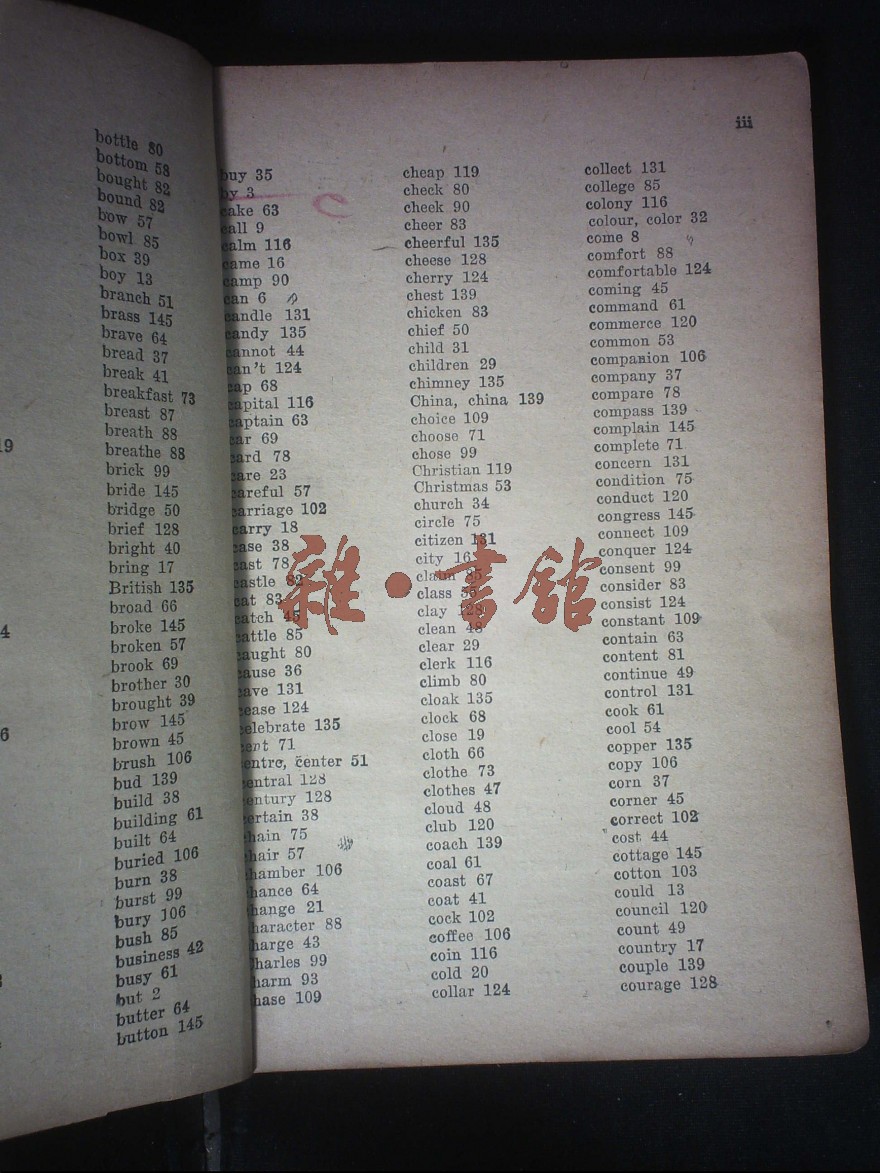 bottle 80
bottom 58
bought 82
bound 82
bow 57
bowl 85
box 39
boy 13
branch 51
brass 145
brave 64
bread 37
break 41
breakfast 73
breast 87
breath 88
breathe 88
brick 99
bride 145
bridge 50
brief 128
bright 40
bring 17
British 135
broad 66
broke 145
broken 57
brook 69
brother 30
brought 39
brow 145
brown 45
brush 106
bud 139
build 38
building 61
built 64
buried 106
burn 38
burst 99
bury 106
bush 85
business 42
busy 61
but 2
butter 64
button 145
iii
buy 35
by 3
C
cake 63
call 9
calm 116
came 16
camp 90
can 6
candle 131
candy 135
cannot 44
can't 124
cap 68
capital 116
captain 63
car 69
card 78
care 23
careful 57
carriage 102
carry 18
case 38
cast 78
castle 82
cat 83
catch 45
cattle 85
caught 80
cause 36
cave 131
cease 124
celebrate 135
cent 71
centre, center 51
central 128
century 128
certain 38
chain 75
chair 57
chamber 106
chance 64
change 21
character 88
charge 43
Charles 99
charm 93
chase 109
cheap 119
check 80
cheek 90
cheer 83
cheerful 135
cheese 128
cherry 124
chest 139
chicken 83
chief 50
child 31
children 29
chimney 135
China, china 139
choice 109
choose 71
chose 99
Christian 119
Christmas 53
church 34
circle 75
citizen 131
city 16
claim 85
class 56
clay 128
clean 48
clear 29
clerk 116
climb 80
cloak 135
clock 68
close 19
cloth 66
clothe 73
clothes 47
cloud 48
club 120
coach 139
coal 61
coast 67
coat 41
cock 102
coffee 106
coin 116
cold 20
collar 124
collect 131
college 85
colony 116
colour, color 32
come 8
comfort 88
comfortable 124
coming 45
command 61
commerce 120
common 53
companion 106
company 37
compare 78
compass 139
complain 145
complete 71
concern 131
condition 75
conduct 120
congress 145
connect 109
conquer 124
consent 99
consider 83
consist 124
constant 109
contain 63
content 81
continue 49
control 131
cook 61
cool 54
copper 135
copy 106
corn 37
corner 45
correct 102
cost 44
cottage 145
cotton 103
could 13
council 120
count 49
country 17
couple 139
courage 128
雜·書館